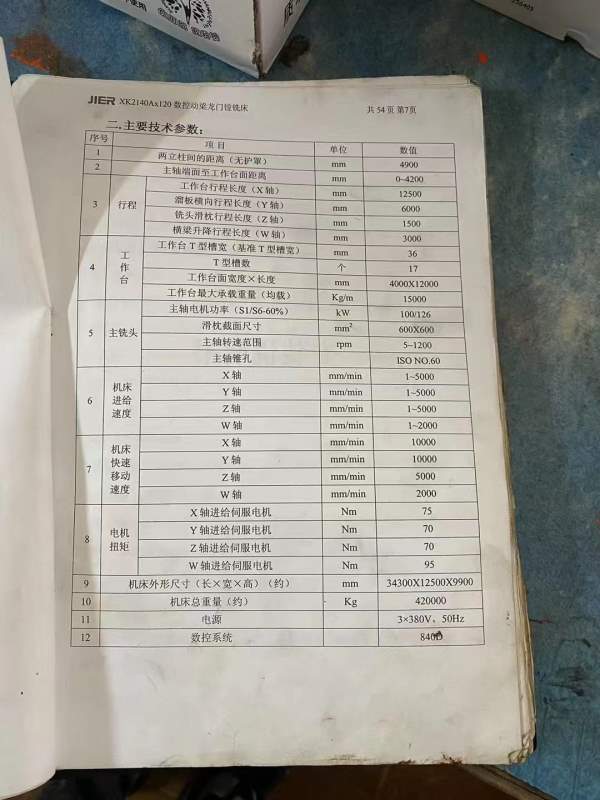 使用
256405
JIER XK2140Ax120 数控动梁龙门镗铣床 共 54 页 第7页
二,主要技术参数:
序号 项目 单位 数值
1 两立柱间的距离(无护罩) mm 4900
2 主轴端面至工作台面距离 mm 0~4200
3 行程 工作台行程长度(X 轴) mm 12500
溜板横向行程长度(Y 轴) mm 6000
铣头滑枕行程长度(Z 轴) mm 1500
横梁升降行程长度(W 轴) mm 3000
4 工作台 工作台 T 型槽宽(基准 T 型槽宽) mm 36
T 型槽数 个 17
工作台面宽度×长度 mm 4000X12000
工作台最大承载重量(均载) Kg/m 15000
5 主铣头 主轴电机功率(S1/S6-60%) kW 100/126
滑枕截面尺寸 mm² 600X600
主轴转速范围 rpm 5~1200
主轴锥孔 ISO NO.60
6 机床进给速度 X 轴 mm/min 1~5000
Y 轴 mm/min 1~5000
Z 轴 mm/min 1~5000
W 轴 mm/min 1~2000
7 机床快速移动速度 X 轴 mm/min 10000
Y 轴 mm/min 10000
Z 轴 mm/min 5000
W 轴 mm/min 2000
8 电机扭矩 X 轴进给伺服电机 Nm 75
Y 轴进给伺服电机 Nm 70
Z 轴进给伺服电机 Nm 70
W 轴进给伺服电机 Nm 95
9 机床外形尺寸(长×宽×高)(约) mm 34300X12500X9900
10 机床总重量(约) Kg 420000
11 电源 3×380V、50Hz
12 数控系统 840D